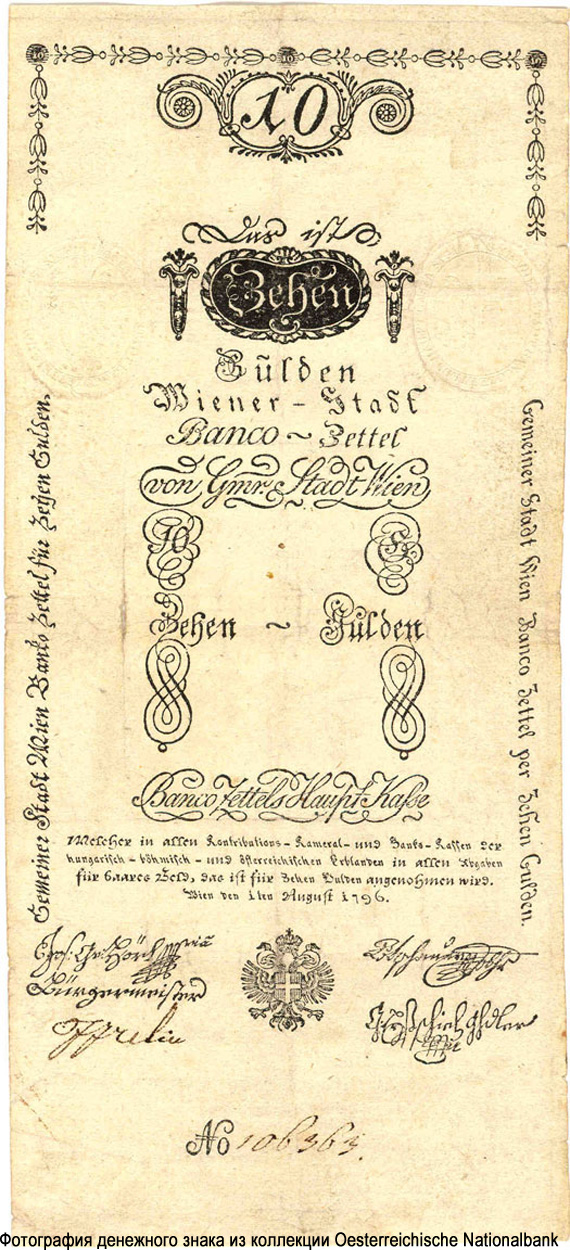 10
Das ist
Zehen
Gülden
Wiener - Stadt
Banco ~ Zettel
von Gmr. Stadt Wien
10 F
Zehen ~ Gulden
Banco Zettels Haupt-Kasse
Welcher in allen Kontributions - Kameral - und Banko - Kassen der
hungarisch - böhmisch - und österreichischen Erblanden in allen Abgaben
für baares Geld, das ist für Zehen Gulden angenohmen wird.
Wien den 1ten August 1796.
Gemeiner Stadt Wien Banko Zettel für Zehen Gulden.
Gemeiner Stadt Wien Banco Zettel per Zehen Gulden.
Jos.
Bürgermeister
No 106363.
Фотография денежного знака из коллекции Oesterreichische Nationalbank